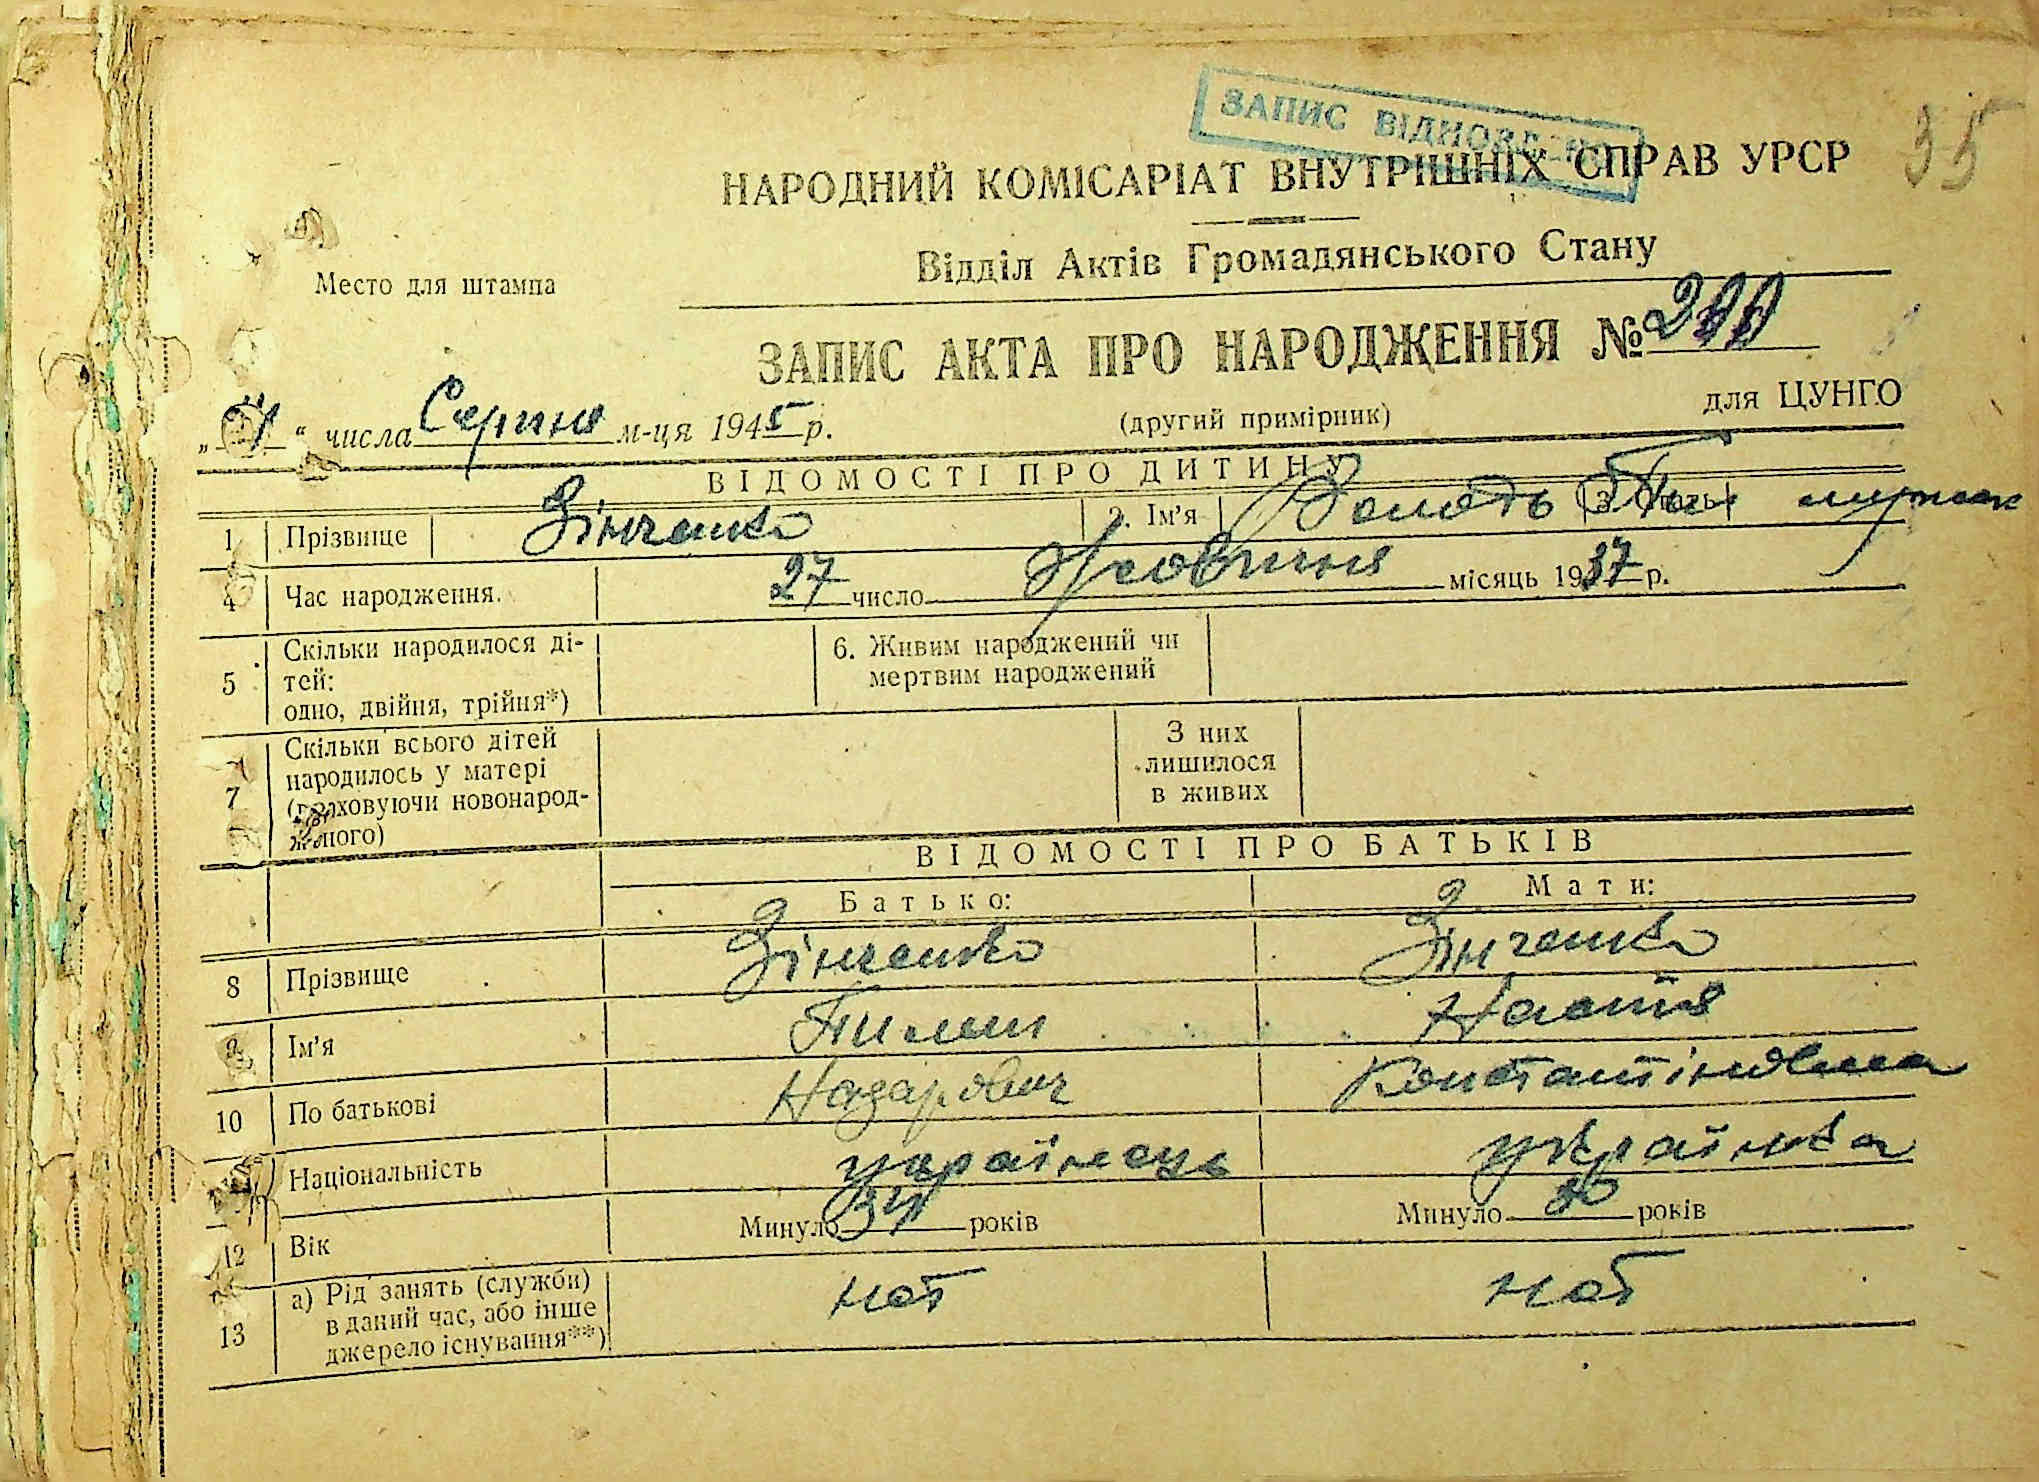 ЗАПИС ВІДНОВЛЕНО
35
НАРОДНИЙ КОМІСАРІАТ ВНУТРІШНІХ СПРАВ УРСР
Відділ Актів Громадянського Стану
Место для штампа
ЗАПИС АКТА ПРО НАРОДЖЕННЯ №
„ “ числа Серпня м-ця 1945 р.
(другий примірник)
для ЦУНГО
ВІДОМОСТІ ПРО ДИТИНУ
1 Прізвище Зінченко 2. Ім’я 3. Стать
4 Час народження. 27 число Жовтня місяць 1937 р.
5 Скільки народилося ді-
тей:
одно, двійня, трійня*)
6. Живим народжений чи
мертвим народжений
7 Скільки всього дітей
народилось у матері
(враховуючи новонарод-
женого)
З них
лишилося
в живих
ВІДОМОСТІ ПРО БАТЬКІВ
Батько: Мати:
8 Прізвище Зінченко Зінченко
9 Ім’я Настя
10 По батькові Назарович Константіновна
Національність українець українка
12 Вік Минуло 34 років Минуло 30 років
13 а) Рід занять (служби)
в даний час, або інше
джерело існування**)